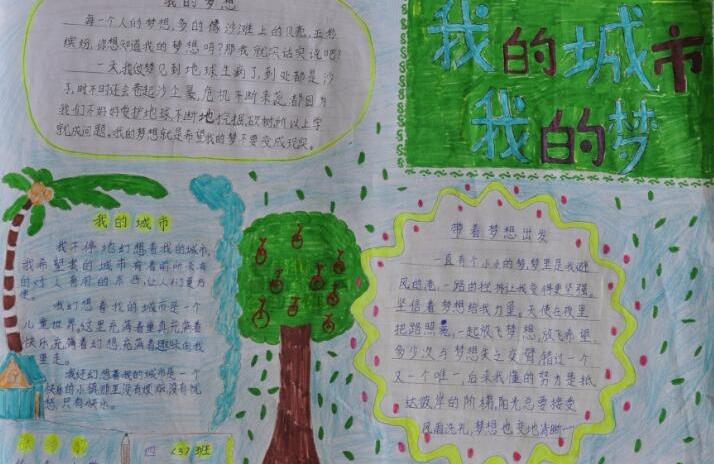 我的梦想
每一个人的梦想,多的像沙滩上的贝壳,五彩
缤纷,你想知道我的梦想吗?那我就实话实说吧!
一天,我做梦见到地球生病了,到处都是沙
子,时不时还会卷起沙尘暴,危机不断来临,都因为
我们不好好爱护地球,不断地挖掘,砍树,所以上学
就成问题。我的梦想就是希望我的梦不要变成现实。
我的城市
我的梦
我的城市
我不停地幻想着我的城市,
我希望我的城市有着前所未有
的对人有用的东西,让人们更方
便。
我幻想着我的城市是一个
儿童世界。这里充满着童真充满着
快乐,充满着幻想充满着趣味向我
里走。
我还幻想着我的城市是一个
快乐的小镇那里没有烦恼没有忧
愁,只有快乐。
带着梦想出发
一直有个小小的梦,梦里是我避
风的港,一路的让我变得更坚强。
坚信着梦想给我力量。天使在夜里
把路照亮,一起放飞梦想,放飞希望,
多少次与梦想失之交臂,错过一个
又一个唯一,后来我懂的努力是抵
达彼岸的阶梯,阳光总要接受
风雨洗礼,梦想也变地清晰……
四〈37〉班